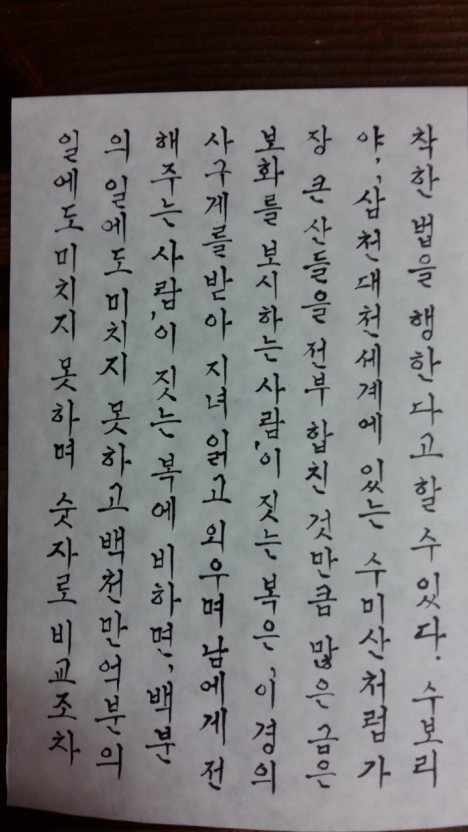 착한 법을 행한다고 할 수 있다. 수보리
야, 삼천대천세계에 있는 수미산처럼 가
장 큰 산들을 전부 합친 것만큼 많은 금은
보화를 보시하는 사람이 짓는 복은, 이 경의
사구게를 받아 지녀 읽고 외우며 남에게 전
해주는 사람이 짓는 복에 비하면, 백분
의 일에도 미치지 못하고 백천만억분의
일에도 미치지 못하며 숫자로 비교조차